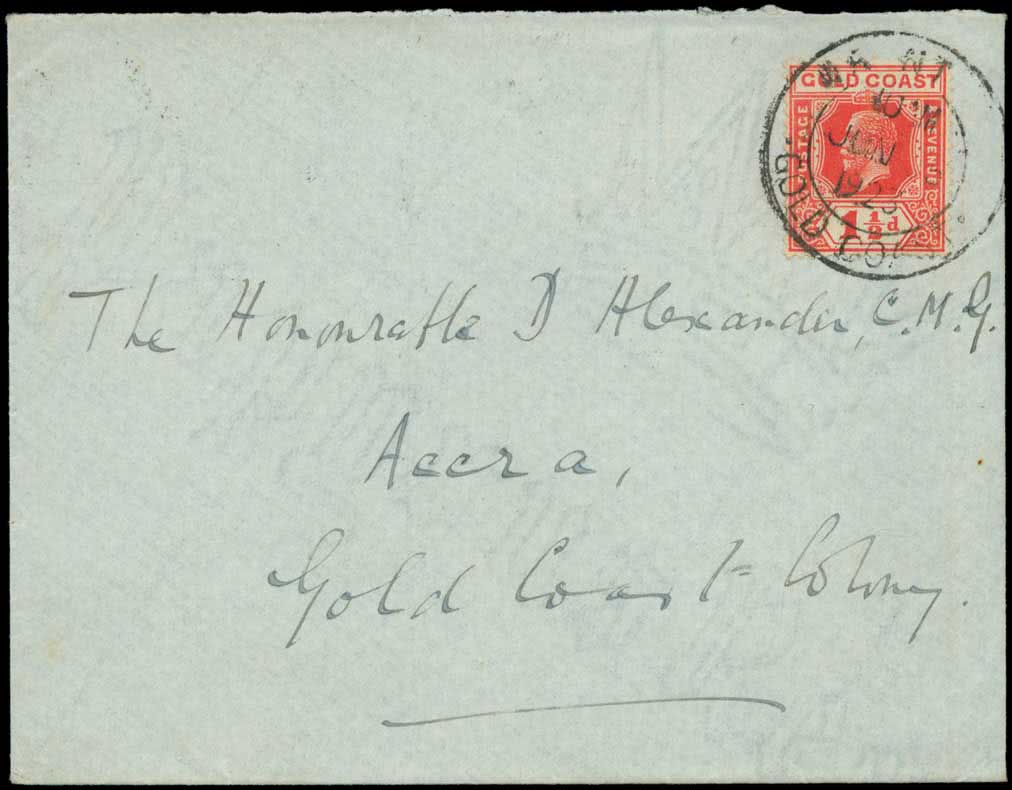 GOLD COAST
POSTAGE
REVENUE
1½d
JUN
GOLD COAST
The Honourable D Alexander, C.M.G.
Accra,
Gold Coast Colony.